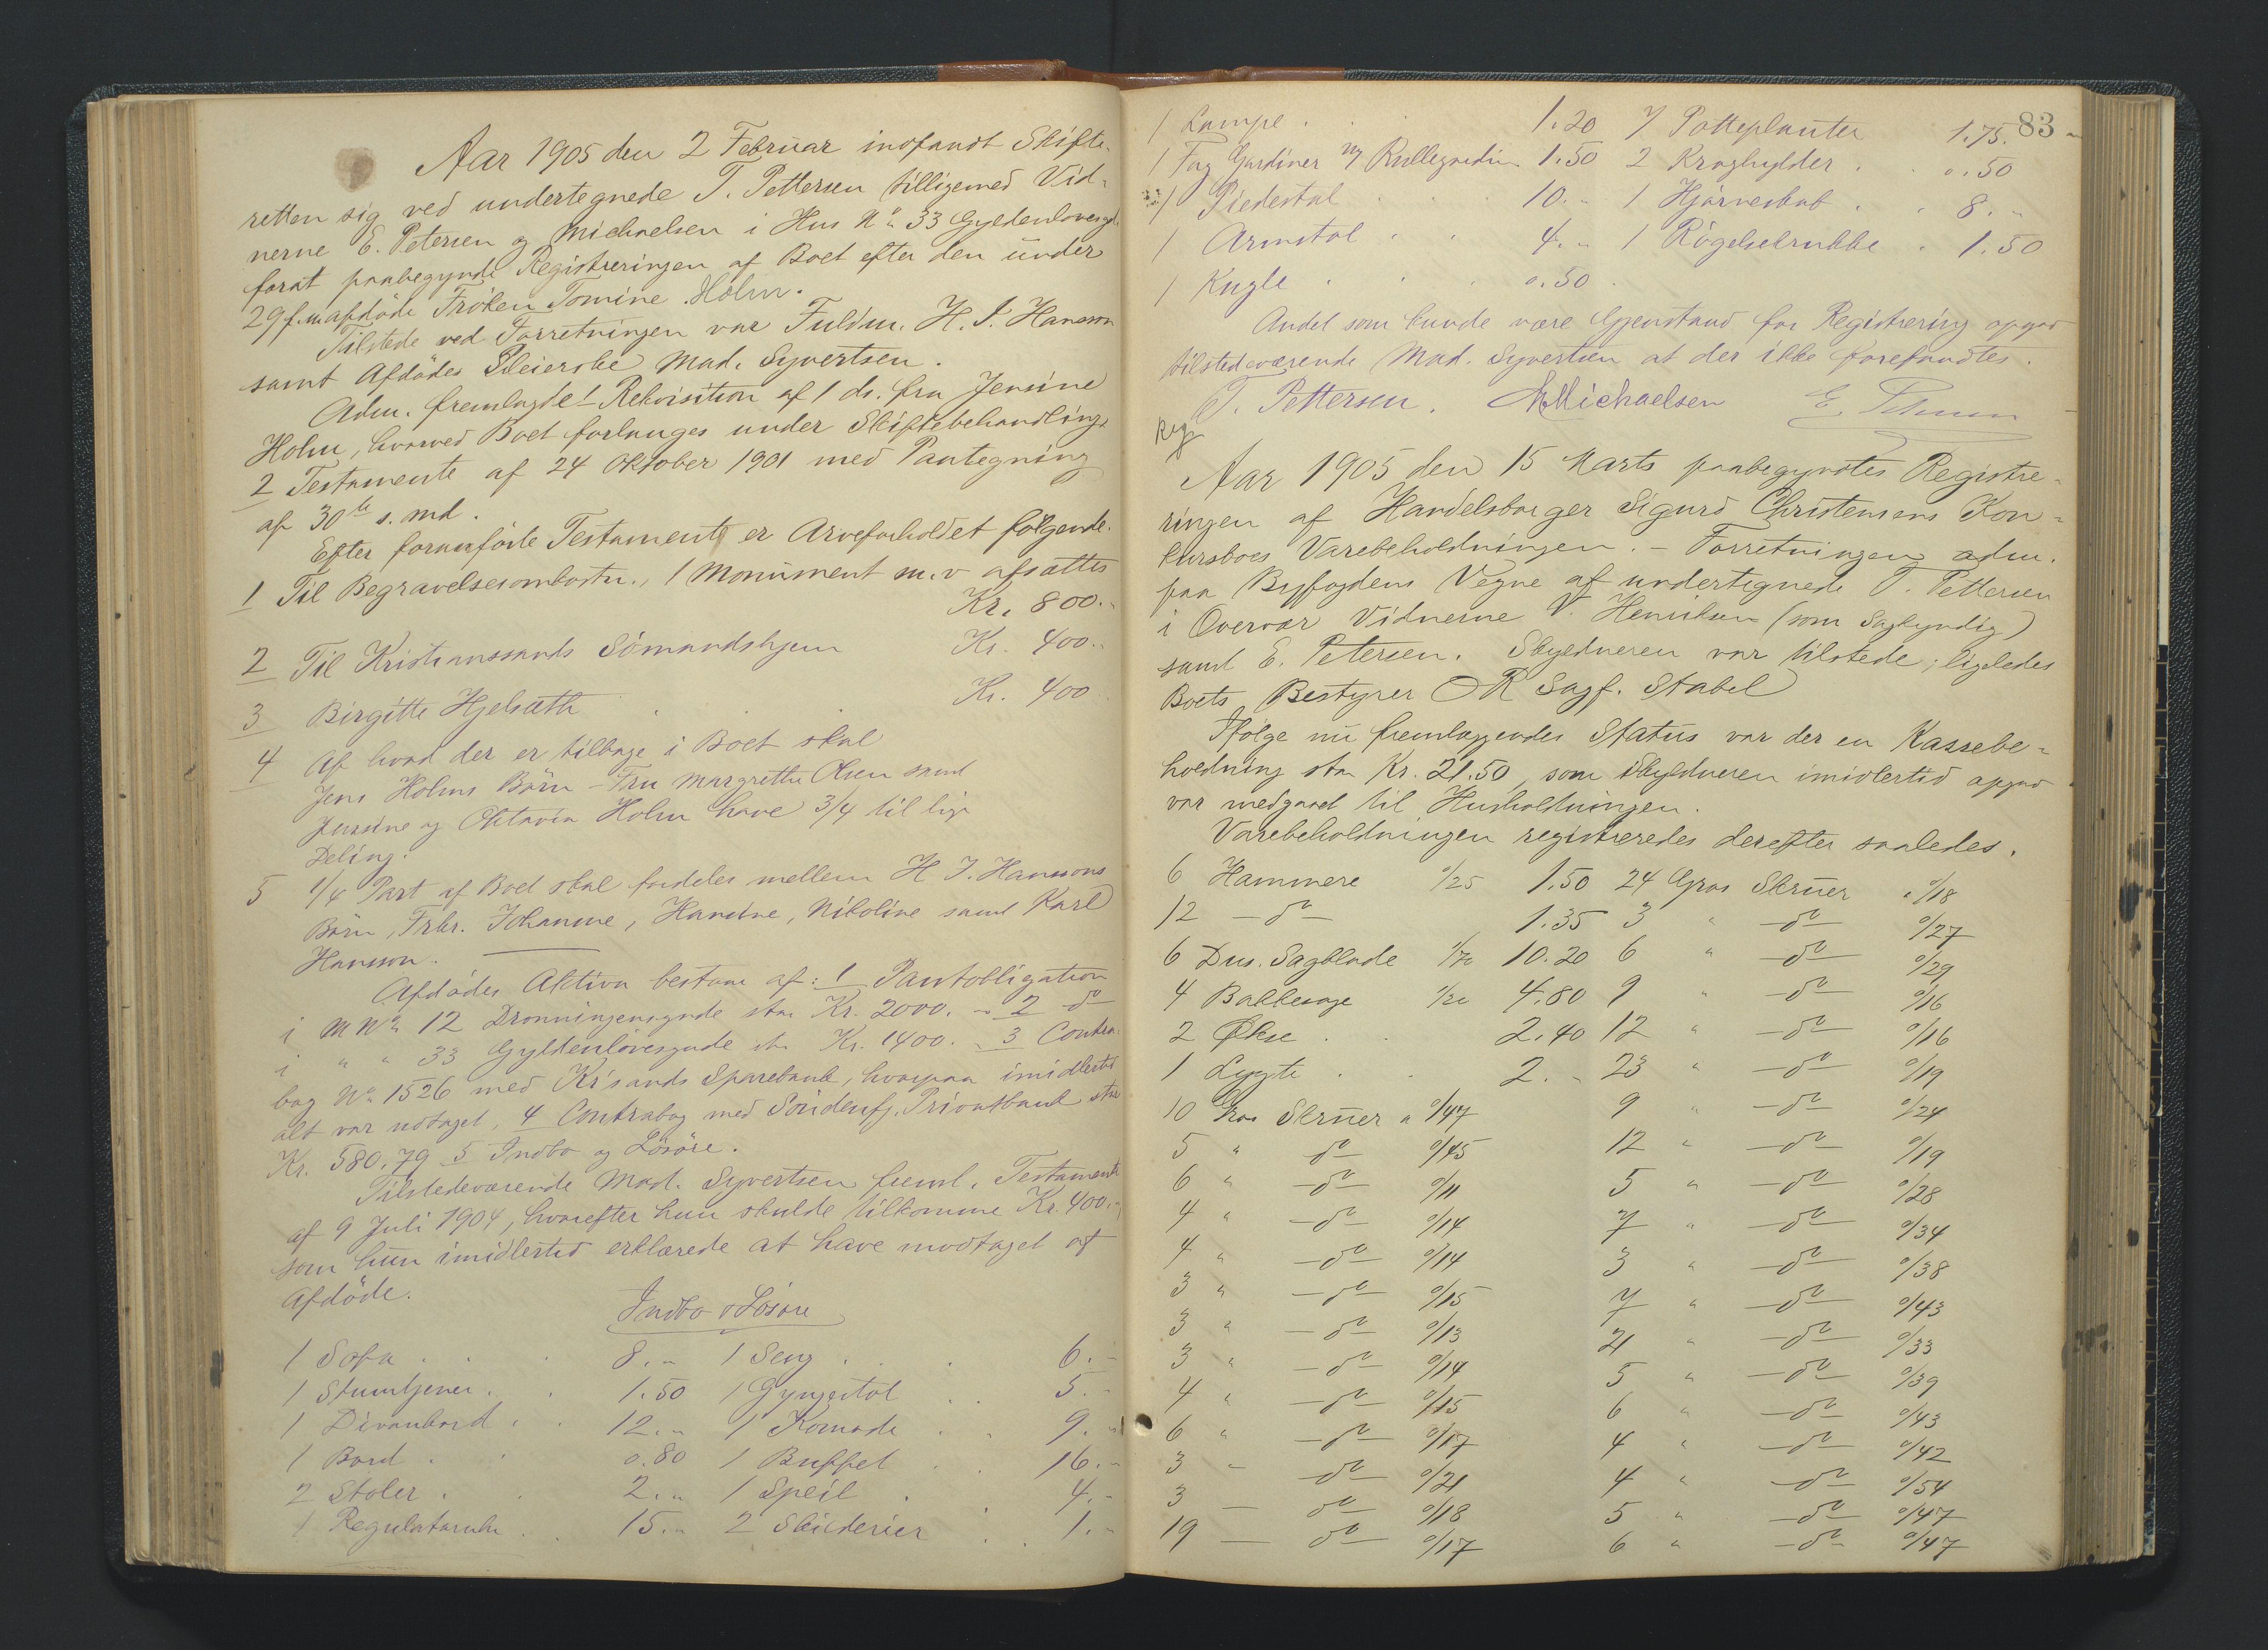 Aar 1905 den 2 Februar indfandt Skifte-
retten sig ved undertegnede T. Pettersen tilligemed Vid-
nerne E. Petersen og Michaelsen i Hus No 33 Gyldenlovesgd
forat paabegynde Registreringen af Boet efter den under
29 f.m. afdöde Fröken Tomine Holm.
Tilstede ved Forretningen var Fuldm. H. J. Hansson
samt Afdödes Pleierske Mad. Syvertsen.
Adm. fremlagde 1 Rekvisition af 1 ds. fra Jensine
Holm, hvorved Boet forlanges under Skiftebehandling,
2 Testamente af 24 Oktober 1901 med Paategning
af 30te s. md.
Efter foranförte Testamente er Arveforholdet fölgende.
1 Til Begravelsesomkostn., 1 Monument m.v afsættes
Kr. 800.-
2 Til Kristianssands Sömandshjem Kr. 400.-
3 Birgitte Hjelsæth . . Kr. 400
4 Af hvad der er tilbage i Boet skal
Jens Holms Börn - Fru Margrethe Olsen samt
Jensine og Oktavia Holm have 3/4 til lige
Deling.
5 1/4 Part af Boet skal fordeles mellem H J. Hanssons
Börn, Frkr. Johanne, Hansine, Nikoline samt Karl
Hansson.
Afdödes Aktiva bestaar af: 1 Pantobligation
i M No 12 Dronningensgade stor Kr. 2000. - 2 - do
i " " 33 Gyldenlövesgade stor Kr. 1400. - 3 Contra-
bog No 1526 med Kr'sands Sparebank, hvorpaa imidlertid
alt var udtaget, 4 Contrabog med Söndenfj. Privatbank stor
Kr. 580,79 5 Indbo og Lösöre.
Tilstedeværende Mad. Syvertsen freml. Testamente
af 9 Juli 1904, hvorefter hun skulde tilkomme Kr. 400.-,
som hun imidlertid erklærede at have modtaget af
Afdöde.
Indbo o Lösöre
1 Sofa . . 8.- 1 Seng . . 6.-
1 Stumtjener . . 1.50 1 Gyngestol . . 5.-
1 Divanbord . . 12.- 1 Komode . . 9.-
1 Bord . . 0.80 1 Buffet . . 16.-
2 Stoler . . 2.- 1 Speil . 4.-
1 Regulatoruhr . . 15.- 2 Skilderier . . 1.-
83
1 Lampe . . 1.20 7 Potteplanter 1.75.
1 Fag Gardiner og Rullegardin 1.50 2 Kroghylder . . 0.50
1 Piedestal . . . 10.- 1 Hjörneskab . . 8.-
1 Armstol . . 4.- 1 Rögelsekrukke . 1.50
1 Kugle . . . 0.50 .
Andet som kunde være Gjenstand for Registrering opgav
tilstedeværende Mad. Syvertsen at der ikke forefandtes.
T. Pettersen. Michaelsen E. Petersen
Reg
Aar 1905 den 15 Marts paabegyndtes Registre-
ringen af Handelsborger Sigurd Christensens Kon-
kursboes Varebeholdningen. - Forretningen adm.
paa Byfogdens Vegne af undertegnede T. Pettersen
i Overvær Vidnerne V. Henriksen (som Sagkyndig)
samt E. Petersen. Skyldneren var tilstede; ligeledes
Boets Bestyrer OR Sagf. Stabel
Ifölge nu fremlæggendes Status var der en Kassebe-
holdning stor Kr. 21.50, som Skyldneren imidlertid opgav
var medgaaet til Husholdningen.
Varebeholdningen registreredes derefter saaledes.
6 Hammere 0/25 1.50 24 Gros Skruer a 0/18
12 - do - 1.35 3 " - do - 0/27
6 Dus. Sagblade 1/70 10.20 6 " - do - 0/29
4 Bakkesage 1/20 4.80 9 " - do - 0/16
2 Økse . . 2.40 12 " - do - 0/16
1 Lygte . . 2.- 23 " - do - 0/19
10 Gros Skruer a 0/47 9 " - do - 0/24
5 " do - 0/45 12 " - do - 0/19
6 " - do - 0/11 5 " - do - 0/28
4 " - do - 0/14 7 " - do - 0/34
4 " - do - 0/14 3 " - do - 0/38
3 " - do - 0/15 7 " - do - 0/43
3 " - do - 0/13 21 " - do - 0/33
3 " - do - 0/14 5 " - do - 0/39
4 " - do - 0/15 6 " - do - 0/43
6 " - do - 0/17 4 " - do - 0/42
3 " - do - 0/21 4 " - do - 0/54
3 - do - 0/18 5 " - do - 0/47
19 - do - 0/17 6 " - do - 0/47